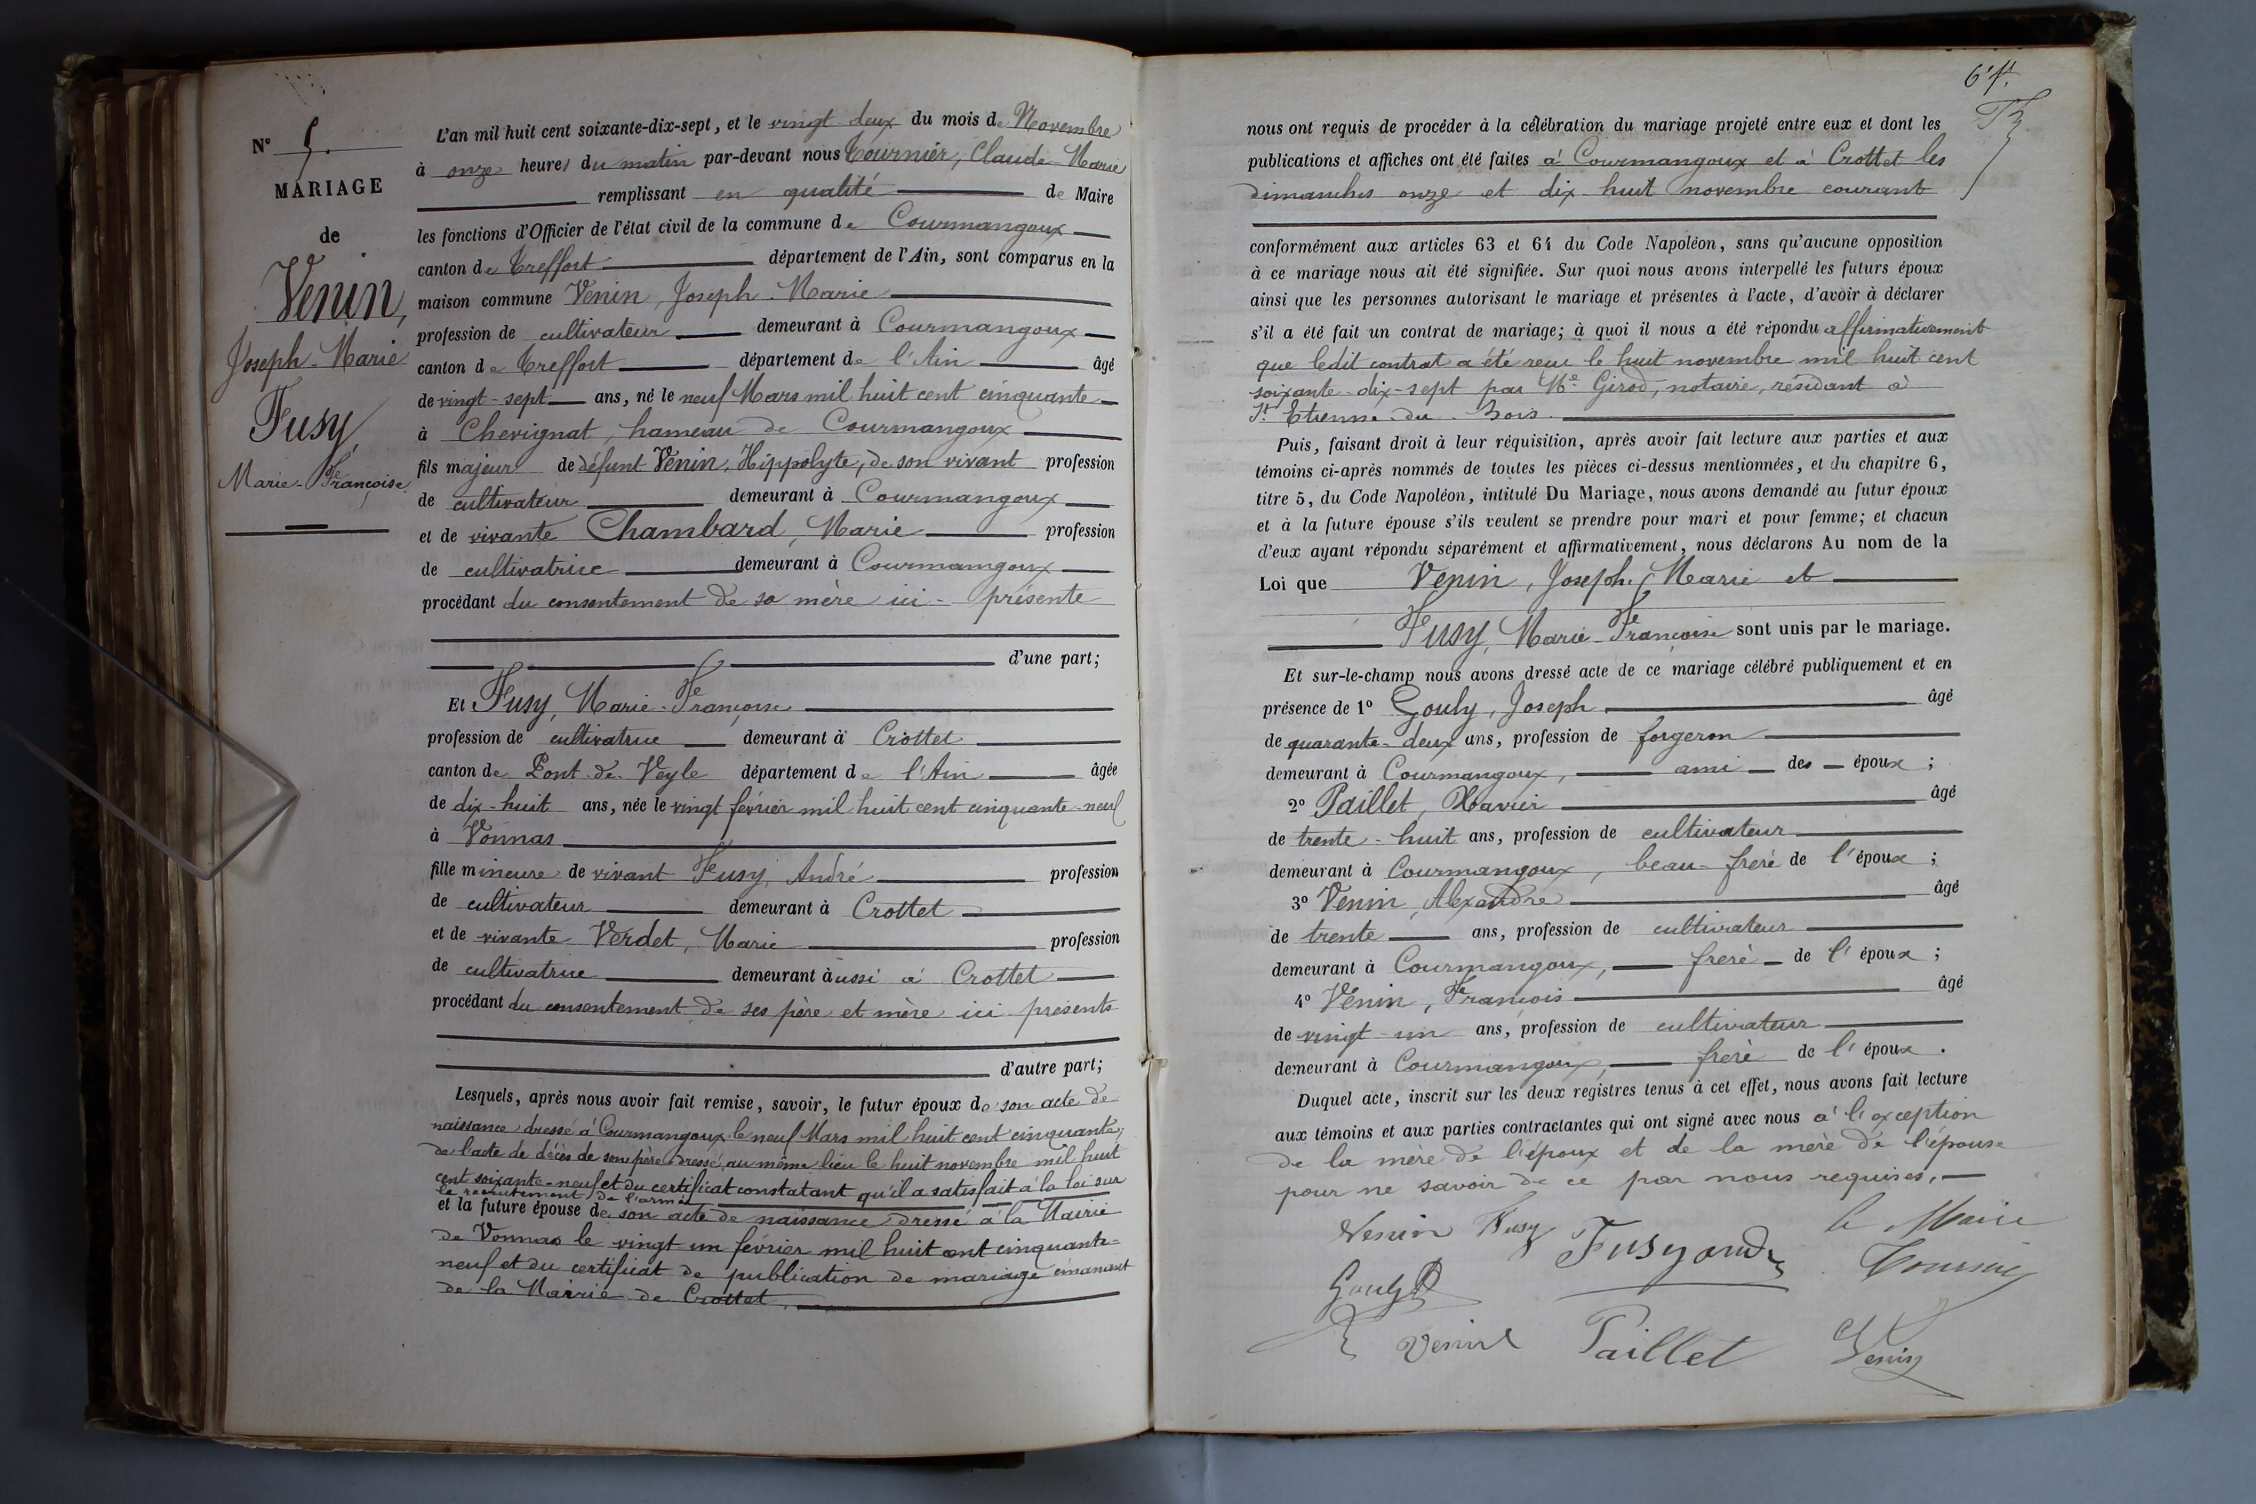 N° 5.
MARIAGE
de
Venin,
Joseph-Marie
Fusy,
Marie-Françoise
L'an mil huit cent soixante-dix-sept, et le vingt deux du mois de Novembre
à onze heures du matin par-devant nous Tournier, Claude-Marie
remplissant en qualité de Maire
les fonctions d'Officier de l'état civil de la commune de Courmangoux
canton de Treffort département de l'Ain, sont comparus en la
maison commune Venin, Joseph-Marie
profession de cultivateur demeurant à Courmangoux
canton de Treffort département de l'Ain âgé
de vingt-sept ans, né le neuf Mars mil huit cent cinquante
à Chevignat, hameau de Courmangoux
fils majeur de défunt Venin, Hippolyte, de son vivant profession
de cultivateur demeurant à Courmangoux
et de vivante Chambard, Marie profession
de cultivatrice demeurant à Courmangoux
procédant du consentement de sa mère ici-présente
d'une part;
Et Fusy, Marie-Françoise
profession de cultivatrice demeurant à Crottet
canton de Pont-de-Veyle département de l'Ain âgée
de dix-huit ans, née le vingt février mil huit cent cinquante-neuf
à Vonnas
fille mineure de vivant Fusy, André profession
de cultivateur demeurant à Crottet
et de vivante Verdet, Marie profession
de cultivatrice demeurant àussi à Crottet
procédant du consentement de ses père et mère ici présents
d'autre part;
Lesquels, après nous avoir fait remise, savoir, le futur époux de son acte de
naissance dressé à Courmangoux le neuf Mars mil huit cent cinquante,
de l'acte de décès de son père dressé au même lieu le huit novembre mil huit
cent soixante-neuf et du certificat constatant qu'il a satisfait à la loi sur
le recrutement de l'armée
et la future épouse de son acte de naissance dressé à la Mairie
de Vonnas le vingt un février mil huit cent cinquante-
neuf et du certificat de publication de mariage émanant
de la Mairie de Crottet,
nous ont requis de procéder à la célébration du mariage projeté entre eux et dont les
publications et affiches ont été faites à Courmangoux et à Crottet les
dimanches onze et dix-huit novembre courant
conformément aux articles 63 et 64 du Code Napoléon, sans qu'aucune opposition
à ce mariage nous ait été signifiée. Sur quoi nous avons interpellé les futurs époux
ainsi que les personnes autorisant le mariage et présentes à l'acte, d'avoir à déclarer
s'il a été fait un contrat de mariage; à quoi il nous a été répondu affirmativement
que ledit contrat a été reçu le huit novembre mil huit cent
soixante-dix-sept par Me Girod, notaire, résidant à
St Etienne-du-Bois.
Puis, faisant droit à leur réquisition, après avoir fait lecture aux parties et aux
témoins ci-après nommés de toutes les pièces ci-dessus mentionnées, et du chapitre 6,
titre 5, du Code Napoléon, intitulé Du Mariage, nous avons demandé au futur époux
et à la future épouse s'ils veulent se prendre pour mari et pour femme; et chacun
d'eux ayant répondu séparément et affirmativement, nous déclarons Au nom de la
Loi que Venin, Joseph-Marie et
Fusy, Marie-Françoise sont unis par le mariage.
Et sur-le-champ nous avons dressé acte de ce mariage célébré publiquement et en
présence de 1° Gouly, Joseph âgé
de quarante-deux ans, profession de forgeron
demeurant à Courmangoux, ami des époux;
2° Paillet, Xavier âgé
de trente-huit ans, profession de cultivateur
demeurant à Courmangoux, beau-frère de l'époux;
3° Venin, Alexandre âgé
de trente ans, profession de cultivateur
demeurant à Courmangoux, frère de l'époux;
4° Venin, François âgé
de vingt-un ans, profession de cultivateur
demeurant à Courmangoux, frère de l'époux.
Duquel acte, inscrit sur les deux registres tenus à cet effet, nous avons fait lecture
aux témoins et aux parties contractantes qui ont signé avec nous à l'exception
de la mère de l'époux et de la mère de l'épouse
pour ne savoir de ce par nous requises.
Venin Fusy Fusy andré le Maire
Gouly Tournier
Venin Paillet Venin